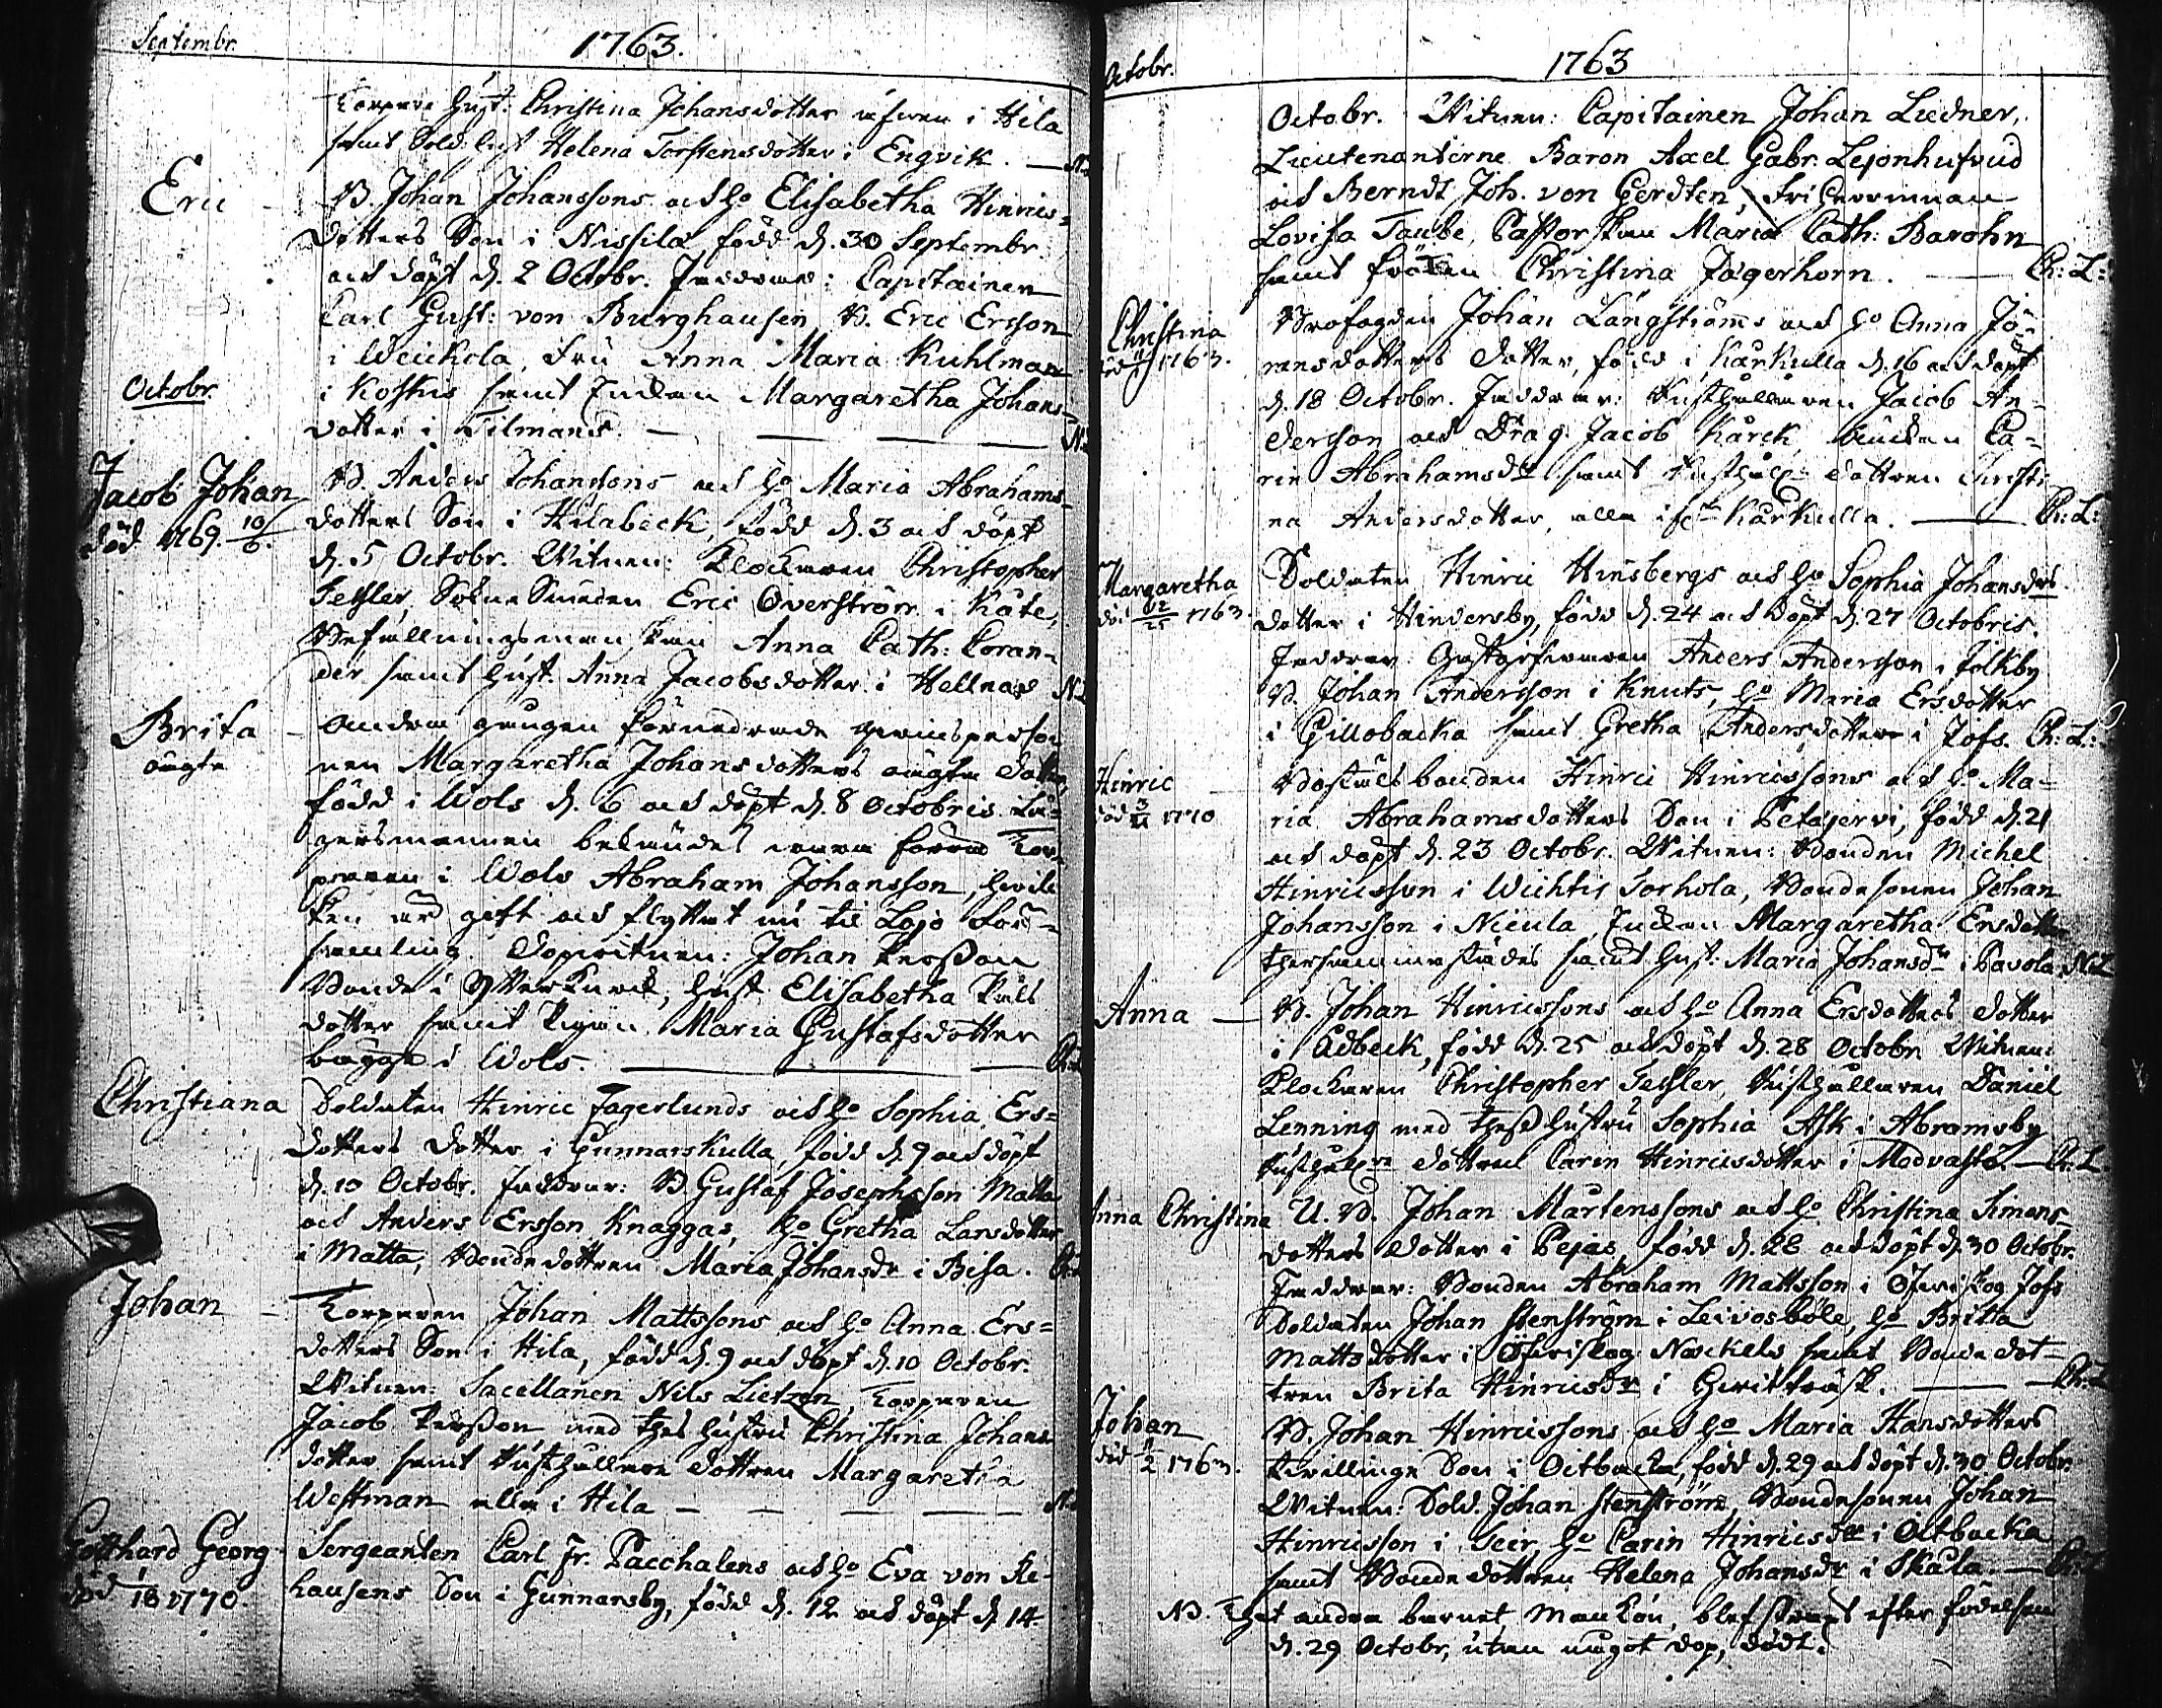 Septembr. 1763.
Torpare Hust: Christina Johansdotter äfwen i Hila
samt Sold: Hust Helena Torstensdotter i Engvik. — N:L
Eric — B. Johan Johanssons och H:o Elisabetha Hinrics-
dotters Son i Nissila, född d. 30 Septembr.
och döpt d. 2 Octobr. Faddrar: Capitainen
Carl Gust: von Burghausen, B. Eric Ersson
i Weickola, Fru Anna Maria Kuhlman
Octobr.
i Koskis samt Enckan Margaretha Johans-
dotter i Tilmans. — N:L
Jacob Johan
död 1769. 10/6.
B. Anders Johanssons och H:o Maria Abrahams-
dotters Son i Hilabeck, född d. 3 och döpt
d. 5 Octobr. Witnen: Klockaren Christopher
Tessler, Sokne Smeden Eric Overström i Kåte,
Befallningsman Skan Anna Cath: Coran-
der samt Hust. Anna Jacobsdotter i Hellnäs N:L
Brita
oägta
— Andra gången förnedrade qwinsperso-
nen Margaretha Johansdotters oägta dotter,
född i Wols d. 6 och döpt d. 8 Octobris. Lä-
gersmannen bekändes wara förra Tor-
paren i Wols Abraham Johansson, hwil-
ken är gift och flyttat nu til Lojo för-
samling. Dopwitnen: Johan Persson
Bonde i Ytterkurck, Hust Elisabetha Påls
dotter samt Pigan Maria Gustafsdotter
bägge i Wols. — Ch:L
Christiana Soldaten Hinric Fagerlunds och H:o Sophia Ers-
dotters dotter i Gunnarskulla, född d. 9 och döpt
d. 10 Octobr. Faddrar: B Gustaf Josephsson Matta
och Anders Ersson Knaggas, H:o Gretha Larsdotter
i Matta, Bondedottren Maria Johansdr i Bisa. Ch:L
Johan — Torparen Johan Mattssons och H:o Anna Ers-
dotters Son i Hila, född d. 9 och döpt d. 10 Octobr.
Witnen: Sacellanen Nils Lietzen, Torparen
Jacob Persson med thes hustru Christina Johans
dotter samt Rusthållare dottren Margaretha
Westman alla i Hila — N:L
Gotthard Georg
död 18 1770.
Sergeanten Carl Fr. Pacchalens och H:o Eva von Re-
hausens Son i Gunnarsby, född d. 12 och döpt d 14.
Octobr. 1763
Octobr. Witnen: Capitainen Johan Liedner,
Lieutenanterne Baron Axel Gabr. Lejonhufvud
och Berndt Joh. von Gerdten, Friherrinnan
Lovisa Taube, Pastor Skan Maria Cath: Barohn
samt fröken Christina Jägerhorn. — Ch: L:
Christina
död 1763.
Brofogden Johan Långströms och H:o Anna Jö-
ransdotters dotter, född i Kårkulla d. 16 och döpt
d. 18 Octobr. Faddrar: Rusthållaren Jacob An-
dersson och Drag. Jacob Kårck, Enckan Ca-
rin Abrahamsdr samt Rusthåll: dottren Christi-
na Andersdotter, alla ifr:n Kårkulla. — Ch: L:
Margaretha
död 12/25 1763.
Soldaten Hinric Hinsbergs och H:o Sophia Johansdrs
dotter i Hindersby, född d. 24 och döpt d. 27 Octobris.
Faddrar: Gästgifwaren Anders Andersson i Folkby
B. Johan Andersson i Knuts, H:o Maria Ersdotter
i Gillobacka samt Gretha Andersdotter i Jofs. Ch: L:
Hinric
död 3/11 1770
Boställsbonden Hinric Hinricssons och H:o Ma-
ria Abrahamsdotters Son i Petäjervi, född d. 21
och döpt d. 23 Octobr. Witnen: Bonden Michel
Hinricsson i Wichtis Torhola, Bondesonen Johan
Johansson i Nicula, Enckan Margaretha Ersdotter
thersammastädes samt Hust: Maria Johansdr i Pavola. N:L
Anna — B. Johan Hinricssons och H:o Anna Ersdotters dotter
i Bådbeck, född d. 25 och döpt d. 28 Octobr. Witnen:
Klockaren Christopher Tessler, Rusthållaren Daniel
Lenning med thess hustru Sophia Ask i Abramsby
Rusthåll:re dottren Carin Hinricsdotter i Modvasto. — Ch: L.
Anna Christina U. B. Johan Mårtenssons och H:o Christina Simons-
dotters dotter i Pejas, född d. 28 och döpt d. 30 Octobr.
Faddrar: Bonden Abraham Mattsson i Öfwiskog Jofs
Soldaten Johan Stenström i Leivosböle, H:o Britta
Mattsdotter i Öfwiskog Nackels samt Bondedot-
tren Brita Hinricsdr i Hwitträsk. — Ch: L
Johan
död 1/2 1763.
B. Johan Hinricssons och H:o Maria Hansdotters
twillinge Son i Oitbacka, född d. 29 och döpt d. 30 Octobr.
Witnen: Sold. Johan Stenström, Bondesonen Johan
Hinricsson i Seir, H:o Carin Hinricsdr i Oitbacka
samt Bondedottren Helena Johansdr i Skåla. — Ch: L
NB. Thet andra barnet, Mankön, blef strax efter födelsen
d. 29 Octobr, utan något dop, dödt.